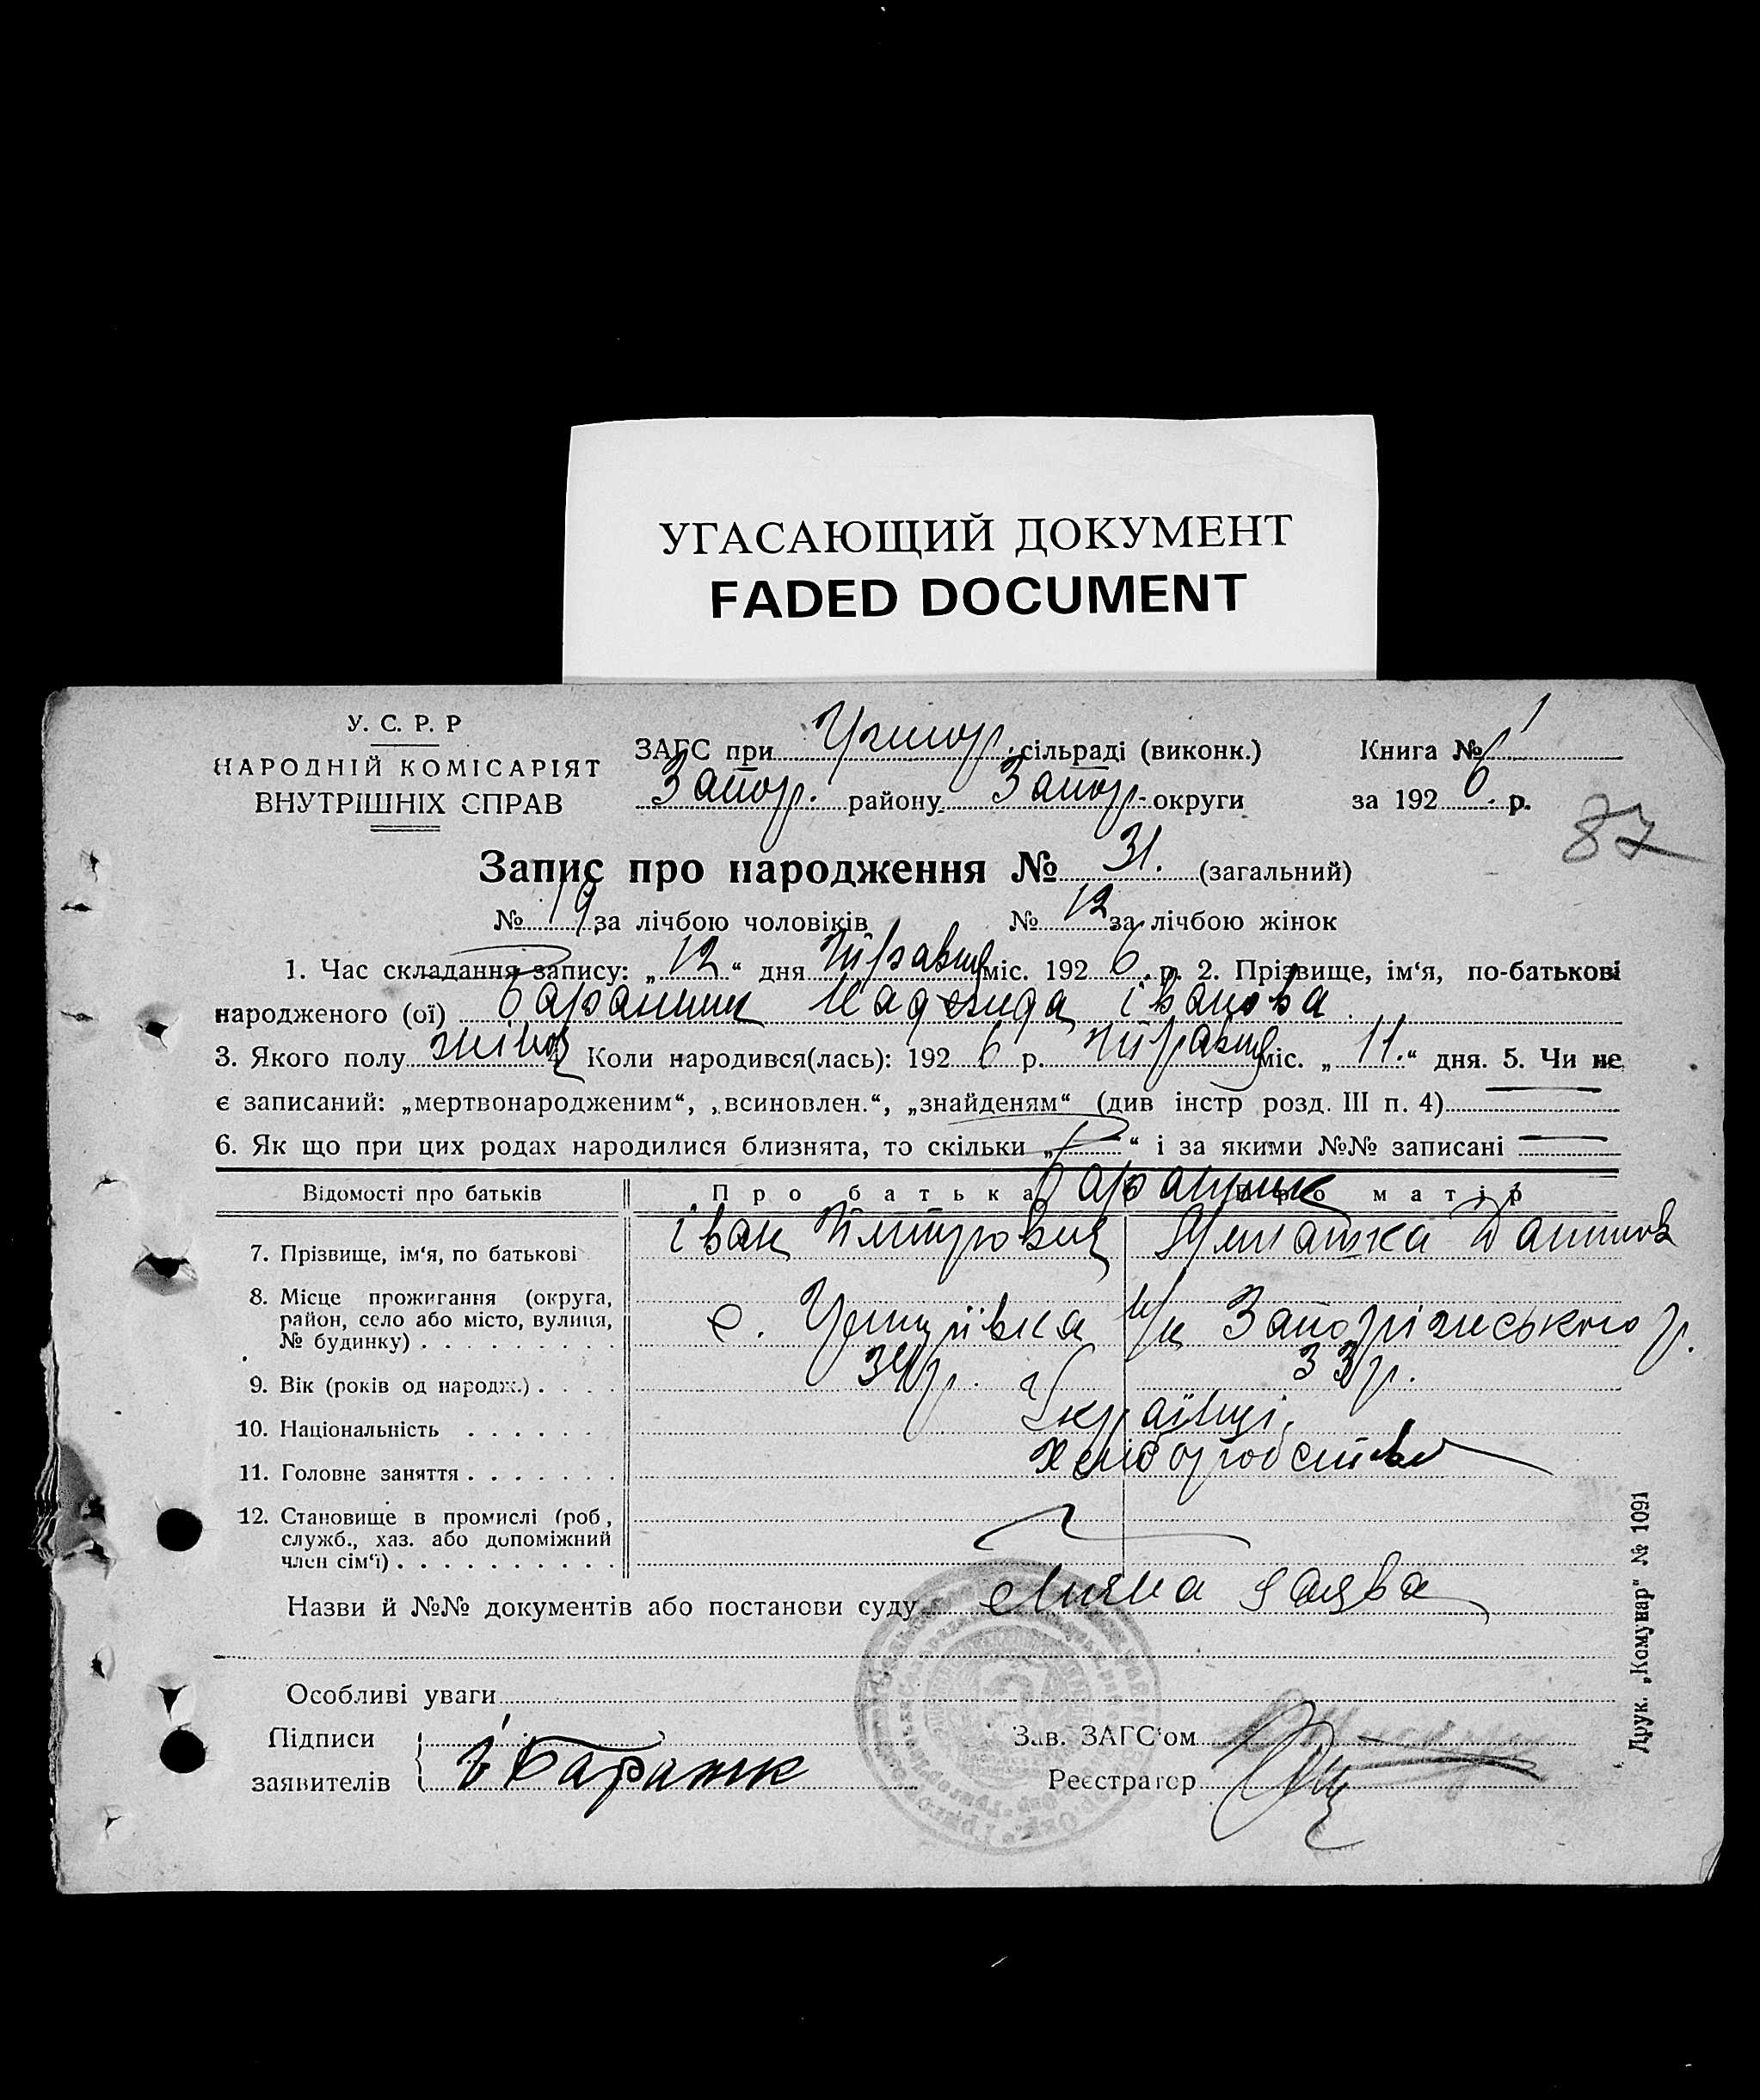 УГАСАЮЩИЙ ДОКУМЕНТ
FADED DOCUMENT
У. С. Р. Р
НАРОДНІЙ КОМІСАРІЯТ
ВНУТРІШНІХ СПРАВ
ЗАГС при сільраді (виконк.) Книга № 1
Запор. району Запор. округи за 1926 р.
87
Запис про народження № 31. (загальний)
№ 19 за лічбою чоловіків № 12 за лічбою жінок
1. Час складання запису: „12“ дня травня міс. 1926 р. 2. Прізвище, ім‘я, по-батькові
народженого (ої) Баранник Надежда Іванова
3. Якого полу жіноч Коли народився(лась): 1926 р. травня міс. „11.“ дня. 5. Чи не
є записаний: „мертвонародженим“, „всиновлен.“, „знайденям“ (див інстр розд. III п. 4) —
6. Як що при цих родах народилися близнята, то скільки „—“ і за якими №№ записані —
Відомості про батьків Про батька Про матір
Баранник
7. Прізвище, ім‘я, по батькові Іван Дмитрович Данилов
8. Місце проживання (округа, район, село або місто, вулиця, № будинку) с. Запорізького р.
9. Вік (років од народж.) 34 р. 33 р.
10. Національність Українці
11. Головне заняття Хліборобство
12. Становище в промислі (роб, служб., хаз. або допоміжний член сім‘ї)
Назви й №№ документів або постанови суду заява
Особливі уваги
Підписи Зав. ЗАГС‘ом
заявителів І Баранник Реєстратор
Друк. „Комунар“ № 1091